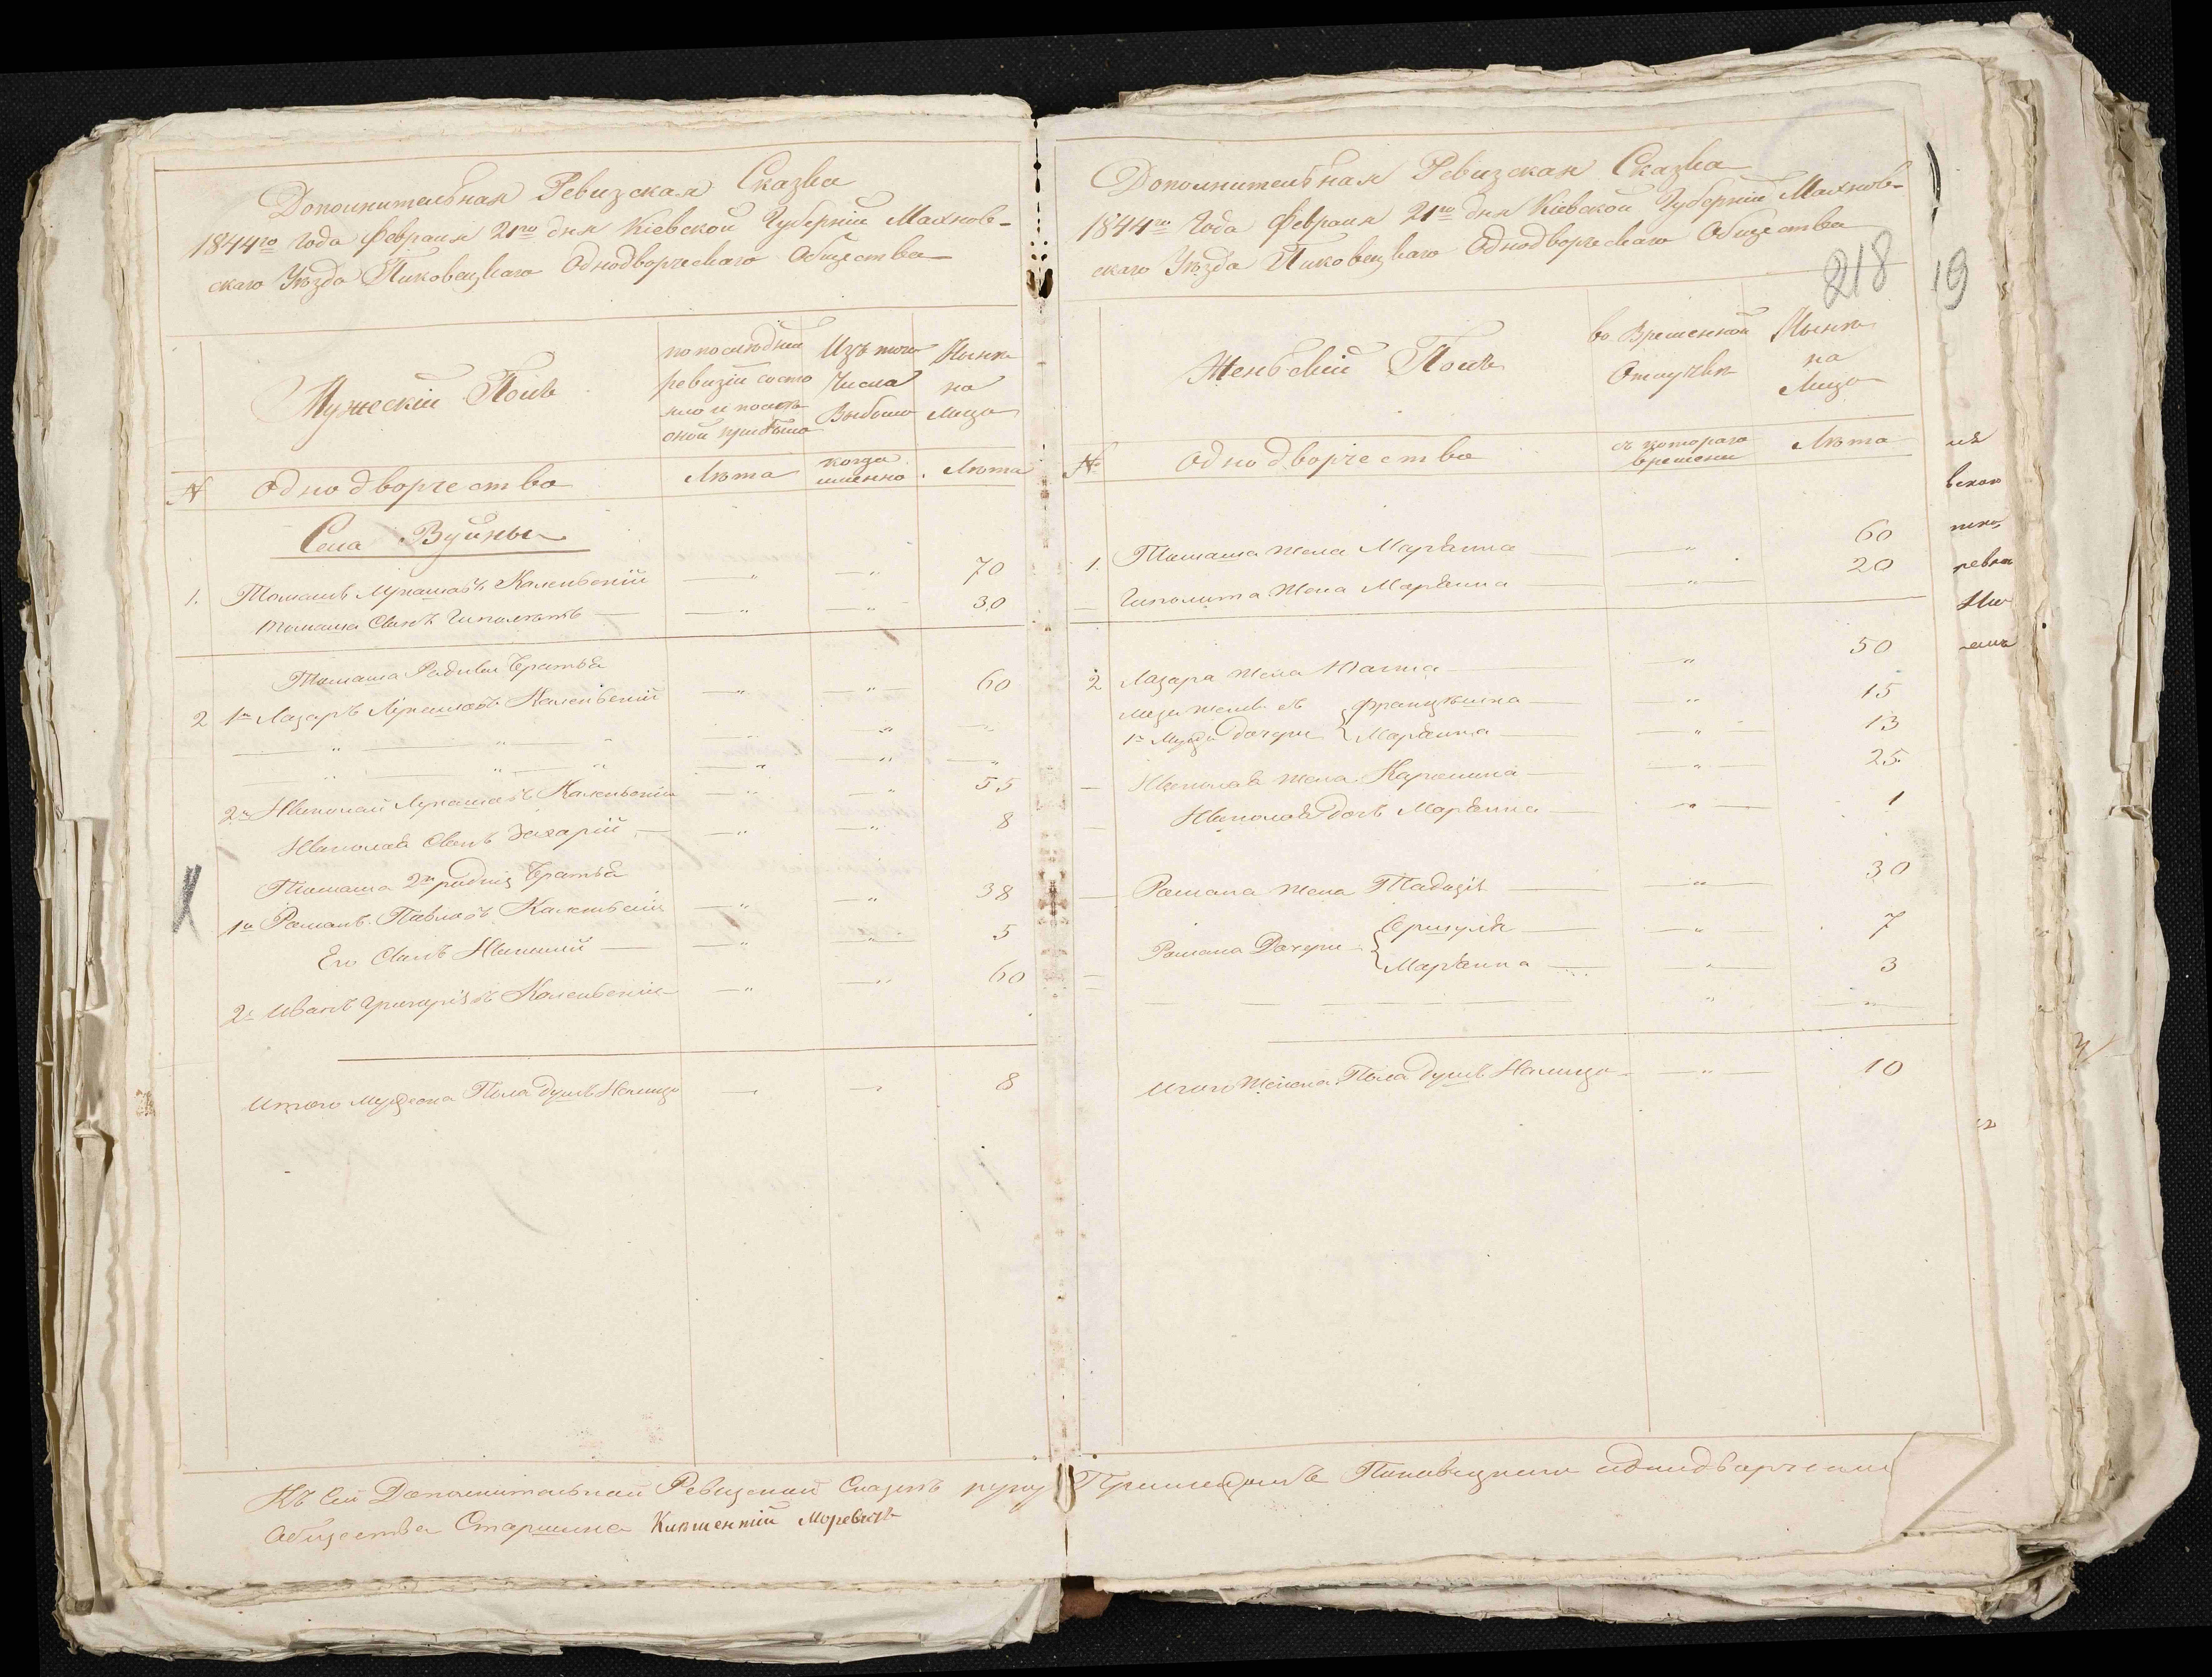 Дополнительная Ревизская Сказка
1844го Года февраля 21го дня Кіевской Губерніи Махнов-
скаго Уѣзда Пиковецкаго Однодворческаго Общества
Мужескій Полъ
по последней
ревизіи состо
яло и послѣ
оной прибыло
Изъ того
Числа
Выбыло
Нынѣ
на
лицо
№ Однодворчество Лѣта когда именно Лѣта
Села Вуйны
1. Томашъ Лукашовъ Каленскій — „ — „ 70
Томаша Сынъ Гиполитъ — „ — „ 30
Томаша Родные Братья
2 1й Лазаръ Лукашовъ Каленскій — „ — „ 60
2й Николай Лукашовъ Каленскій — „ — „ 55
Николая Сынъ Захарій — „ — „ 8
Томаша 2й родніи Братья
1й Романъ Павловъ Каленскій — „ — „ 38
Его Сынъ — „ — „ 5
2й Иванъ Григоріевъ Каленскій — „ — „ 60
Итого мужеска Пола душъ Налицо 8
Дополнительная Ревизская Сказка
1844го Года февраля 21го дня Кіевской Губерніи Махнов-
скаго Уѣзда Пиковецкаго Однодворческаго Общества
218 19
Женскій Полъ
во Временной
Отлучкѣ
Нынѣ
на
Лицо
№ Однодворчество съ котораго времени Лѣта
1. Томаша жена Марьянна — „ 60
Гиполита Жена Марьянна — „ 20
2 Лазара жена — „ 50
Францѣшка — „ 15
1й дочери Марьянна — „ 13
Николая жена Каролина — „ 25
Николая дочь Марьянна — „ 1
Романа жена — „ 30
Романа Дочери „ 7
Марьянна „ 3
Итого Женска Пола душъ Налицо — „ 10
Къ Сей Дополнительной Ревизской Сказкѣ руку Приложилъ Пиковецкаго однодворческаго
Общества Старшина Моревичъ